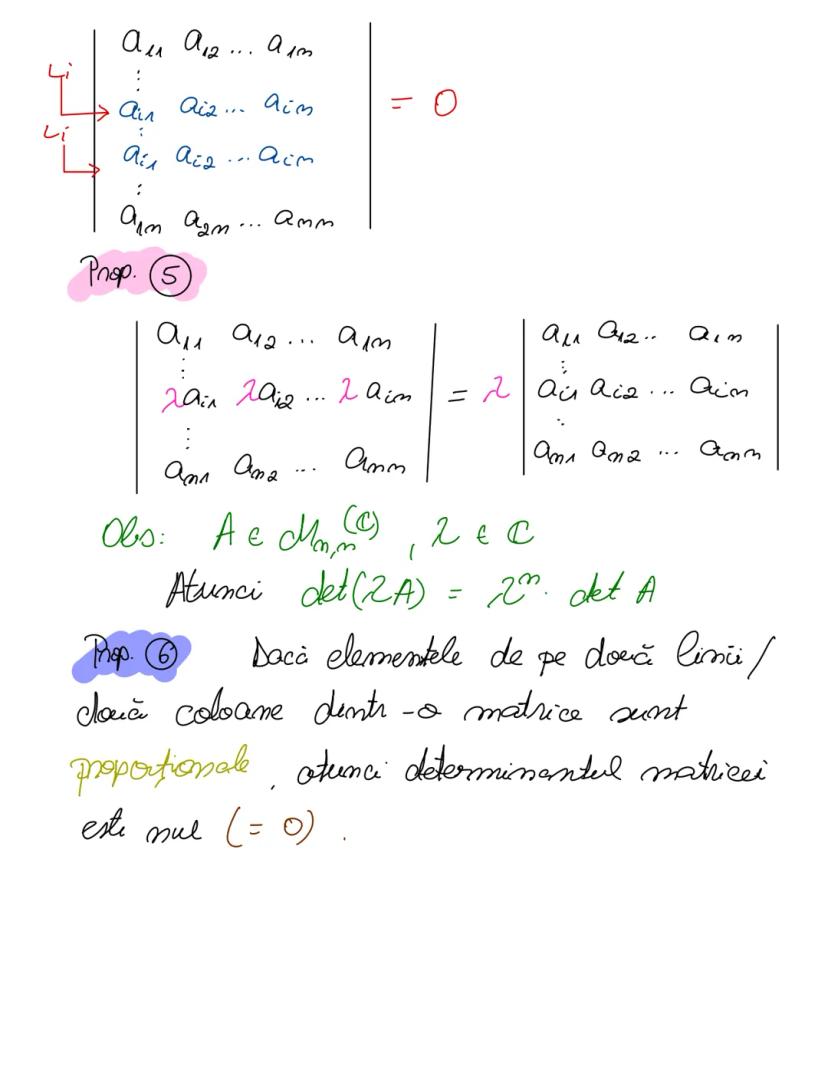 a₁₁ a₁₂ ... a₁ₙ
⋮
Li → aᵢ₁ aᵢ₂ ... aᵢₙ = 0
⋮
Li → aᵢ₁ aᵢ₂ ... aᵢₙ
⋮
a₁ₙ a₂ₙ ... aₙₙ
Prop. ⑤
| a₁₁ a₁₂ ... a₁ₙ | | a₁₁ a₁₂ .. a₁ₙ |
⋮ ⋮
| λaᵢ₁ λaᵢ₂ ... λaᵢₙ | = λ | aᵢ₁ aᵢ₂ ... aᵢₙ |
⋮ ⋮
| aₙ₁ aₙ₂ ... aₙₙ | | aₙ₁ aₙ₂ ... aₙₙ |
Obs: A ∈ Mₙ,ₙ(C), λ ∈ C
Atunci det(λA) = λⁿ · det A
Prop. ⑥ Dacă elementele de pe două linii/
două coloane dintr-o matrice sunt
proporționale, atunci determinantul matricei
este nul (= 0).